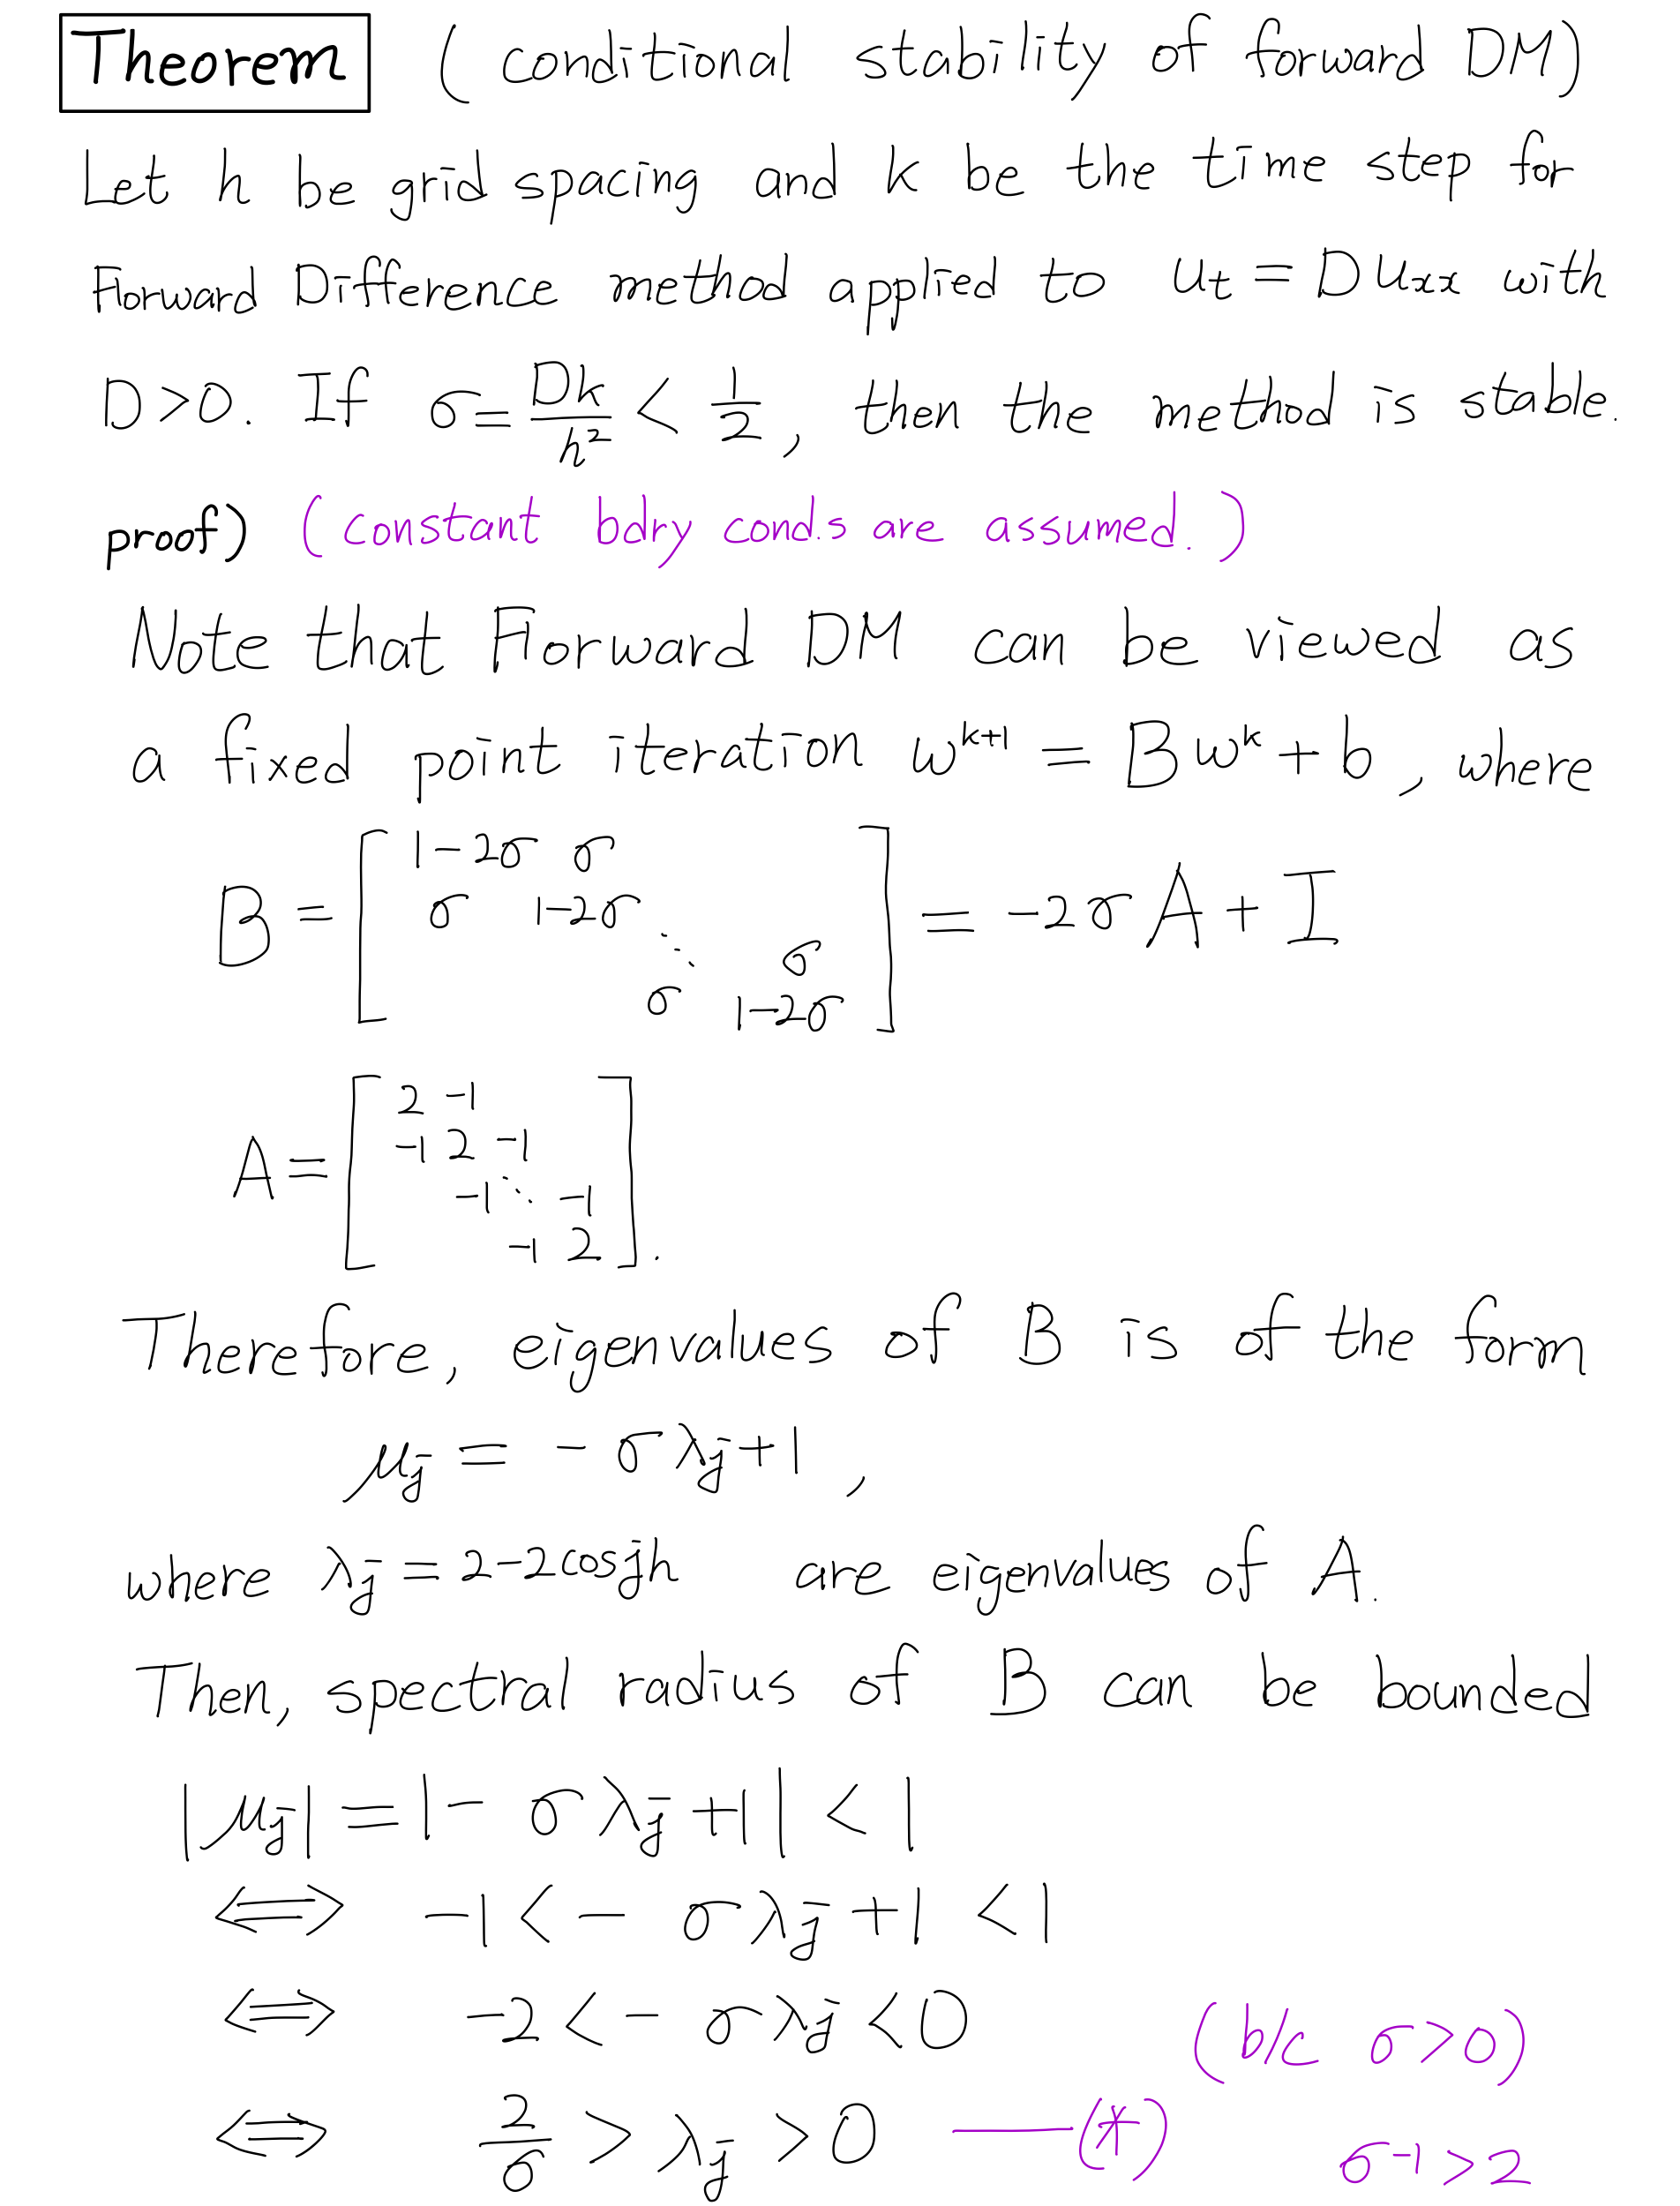 Theorem (conditional stability of forward DM)
Let h be grid spacing and k be the time step for
Forward Difference method applied to u_t = D u_xx with
D>0. If σ = Dk/h² < 1/2, then the method is stable.
proof) (constant bdry conds are assumed.)
Note that Forward DM can be viewed as
a fixed point iteration w^{k+1} = B w^k + b, where
B = [ 1-2σ σ
σ 1-2σ
⋱ σ
σ 1-2σ ] = -2σA + I
A = [ 2 -1
-1 2 -1
-1 ⋱ -1
-1 2 ].
Therefore, eigenvalues of B is of the form
μ_j = - σλ_j + 1 ,
where λ_j = 2-2cosjh are eigenvalues of A.
Then, spectral radius of B can be bounded
|μ_j| = |- σλ_j + 1| < 1
⟺ -1 < - σλ_j + 1 < 1
⟺ -2 < - σλ_j < 0 (b/c σ>0)
⟺ 2/σ > λ_j > 0 —(*) σ^{-1} > 2